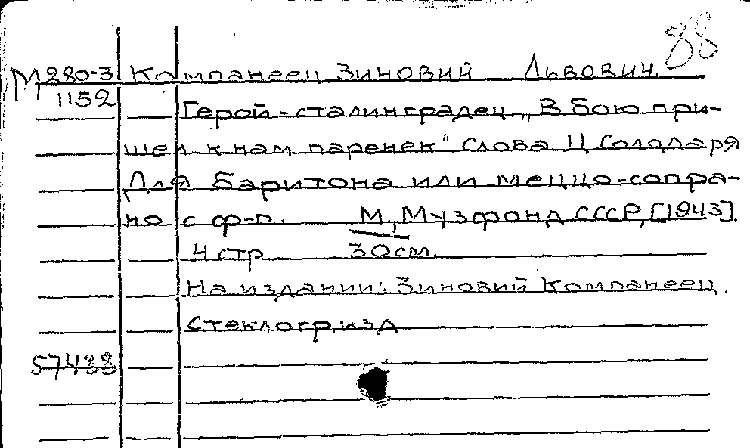 88
М 280-3 Компанеец Зиновий Львович.
1152 Герой-сталинградец „В бою при-
шел к нам паренек" Слова Ц Солодаря
Для баритона или меццо-сопра-
но с ф-п. М, Музфонд СССР, [1943].
4 стр 30см.
На издании: Зиновий Компанеец.
Стеклогр.изд
57488